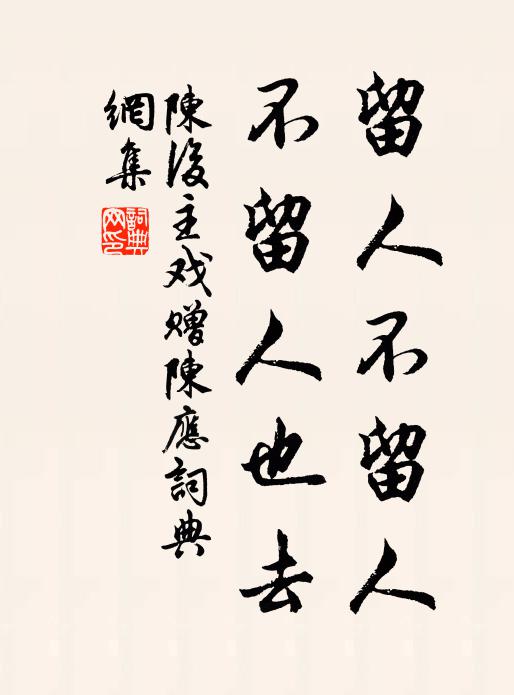 留人不留人
不留人也去
陳後主戏赠陳應詞典
網集
詞典
网印